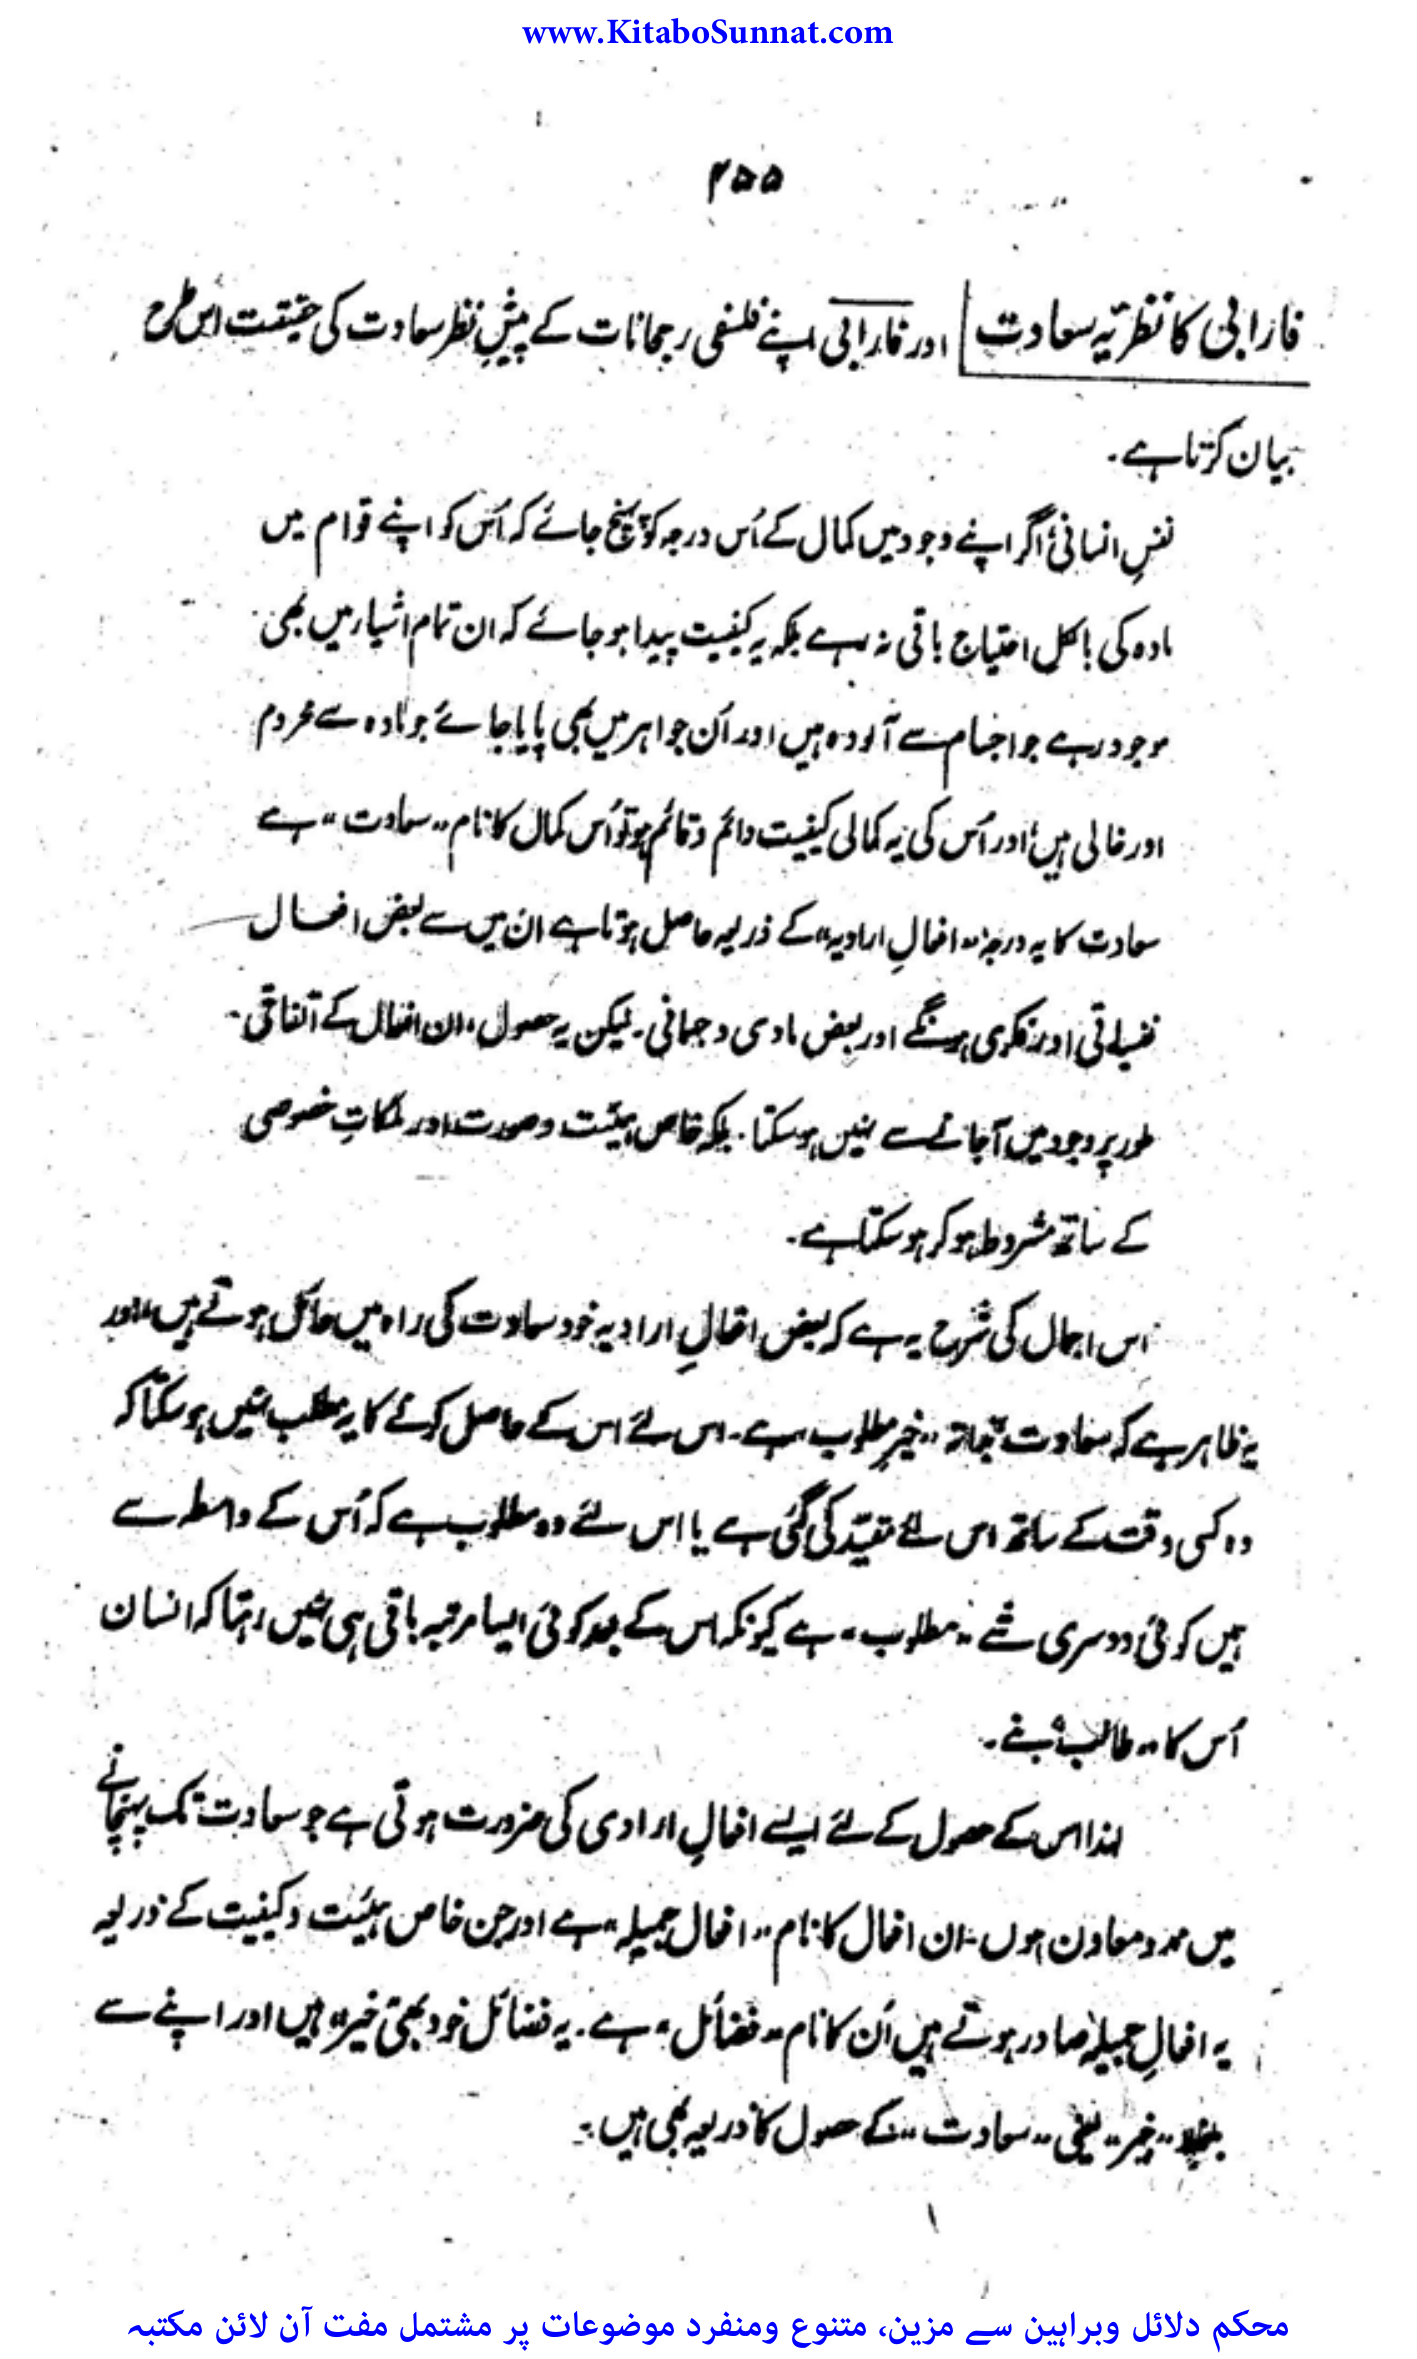 www.KitaboSunnat.com
۴۵۵
فارابی کا نظریہ سعادت اور فارابی اپنے فلسفی رجحانات کے پیشِ نظر سعادت کی حقیقت اس طرح
بیان کرتا ہے۔
نفسِ انسانی اگر اپنے وجود میں کمال کے اُس درجہ کو پہنچ جائے کہ اُس کو اپنے قوام میں
مادہ کی بالکل احتیاج باقی نہ رہے بلکہ یہ کیفیت پیدا ہو جائے کہ ان تمام اشیاء میں بھی
موجود رہے جو اجسام سے آلودہ ہیں اور اُن جواہر میں بھی پایا جائے جو مادہ سے محروم
اور خالی ہیں، اور اُس کی یہ کمالی کیفیت دائم و قائم ہو تو اُس کمال کا نام "سعادت" ہے
سعادت کا یہ درجہ "افعالِ ارادیہ" کے ذریعہ حاصل ہوتا ہے ان میں سے بعض افعال
نفسیاتی اور فکری ہونگے اور بعض مادی و جسمانی۔ لیکن یہ حصول، ان افعال کے اتفاقی
طور پر وجود میں آجانے سے نہیں ہو سکتا۔ بلکہ خاص ہیئت و صورت اور ملکاتِ خصوصی
کے ساتھ مشروط ہو کر ہو سکتا ہے۔
اس اجمال کی شرح یہ ہے کہ بعض افعالِ ارادیہ خود سعادت کی راہ میں حائل ہوتے ہیں، اور
یہ ظاہر ہے کہ سعادت بذاتہ "خیر مطلوب" ہے۔ اس لئے اس کے حاصل کرنے کا یہ مطلب نہیں ہو سکتا کہ
وہ کسی وقت کے ساتھ اس لئے مقیّد کی گئی ہے یا اس لئے وہ مطلوب ہے کہ اُس کے واسطہ سے
ہیں کوئی دوسری شے "مطلوب" ہے کیونکہ اس کے بعد کوئی ایسا مرتبہ باقی ہی نہیں رہتا کہ انسان
اُس کا "طالب" بنے۔
لہذا اس کے حصول کے لئے ایسے افعالِ ارادی کی ضرورت ہوتی ہے جو سعادت تک پہنچانے
میں ممد و معاون ہوں، ان افعال کا نام "افعال جمیلہ" ہے اور جن خاص ہیئت و کیفیت کے ذریعہ
یہ افعالِ جمیلہ صادر ہوتے ہیں اُن کا نام "فضائل" ہے۔ یہ فضائل خود بھی "خیر" ہیں اور اپنے سے
"خیر" یعنی "سعادت" کے حصول کا ذریعہ بھی ہیں۔
محکم دلائل وبراہین سے مزین، متنوع ومنفرد موضوعات پر مشتمل مفت آن لائن مکتبہ